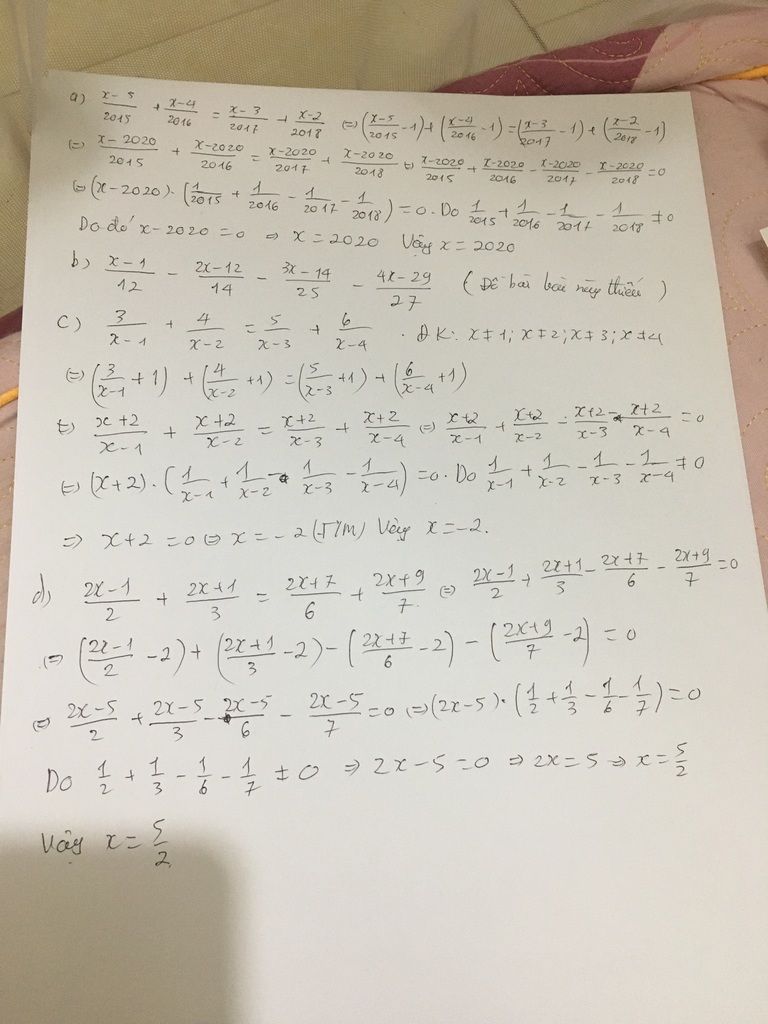 a) \frac{x-5}{2015} + \frac{x-4}{2016} = \frac{x-3}{2017} + \frac{x-2}{2018} ⇔ (\frac{x-5}{2015} - 1) + (\frac{x-4}{2016} - 1) = (\frac{x-3}{2017} - 1) + (\frac{x-2}{2018} - 1)
⇔ \frac{x-2020}{2015} + \frac{x-2020}{2016} = \frac{x-2020}{2017} + \frac{x-2020}{2018} ⇔ \frac{x-2020}{2015} + \frac{x-2020}{2016} - \frac{x-2020}{2017} - \frac{x-2020}{2018} = 0
⇔ (x-2020) . (\frac{1}{2015} + \frac{1}{2016} - \frac{1}{2017} - \frac{1}{2018}) = 0. Do \frac{1}{2015} + \frac{1}{2016} - \frac{1}{2017} - \frac{1}{2018} ≠ 0
Do đó x-2020 = 0 ⇒ x = 2020 Vậy x = 2020
b) \frac{x-1}{12} - \frac{2x-12}{14} - \frac{3x-14}{25} - \frac{4x-29}{27} (Đề bài bài này thiếu)
c) \frac{3}{x-1} + \frac{4}{x-2} = \frac{5}{x-3} + \frac{6}{x-4} . ĐK: x≠1; x≠2; x≠3; x≠4
⇔ (\frac{3}{x-1} + 1) + (\frac{4}{x-2} + 1) = (\frac{5}{x-3} + 1) + (\frac{6}{x-4} + 1)
⇔ \frac{x+2}{x-1} + \frac{x+2}{x-2} = \frac{x+2}{x-3} + \frac{x+2}{x-4} ⇔ \frac{x+2}{x-1} + \frac{x+2}{x-2} - \frac{x+2}{x-3} - \frac{x+2}{x-4} = 0
⇔ (x+2) . (\frac{1}{x-1} + \frac{1}{x-2} - \frac{1}{x-3} - \frac{1}{x-4}) = 0. Do \frac{1}{x-1} + \frac{1}{x-2} - \frac{1}{x-3} - \frac{1}{x-4} ≠ 0
⇒ x+2 = 0 ⇔ x = -2 (T/M) Vậy x = -2.
d) \frac{2x-1}{2} + \frac{2x+1}{3} = \frac{2x+7}{6} + \frac{2x+9}{7}. ⇔ \frac{2x-1}{2} + \frac{2x+1}{3} - \frac{2x+7}{6} - \frac{2x+9}{7} = 0
⇔ (\frac{2x-1}{2} - 2) + (\frac{2x+1}{3} - 2) - (\frac{2x+7}{6} - 2) - (\frac{2x+9}{7} - 2) = 0
⇔ \frac{2x-5}{2} + \frac{2x-5}{3} - \frac{2x-5}{6} - \frac{2x-5}{7} = 0 ⇔ (2x-5) . (\frac{1}{2} + \frac{1}{3} - \frac{1}{6} - \frac{1}{7}) = 0
Do \frac{1}{2} + \frac{1}{3} - \frac{1}{6} - \frac{1}{7} ≠ 0 ⇒ 2x-5 = 0 ⇒ 2x = 5 ⇒ x = \frac{5}{2}
Vậy x = \frac{5}{2}